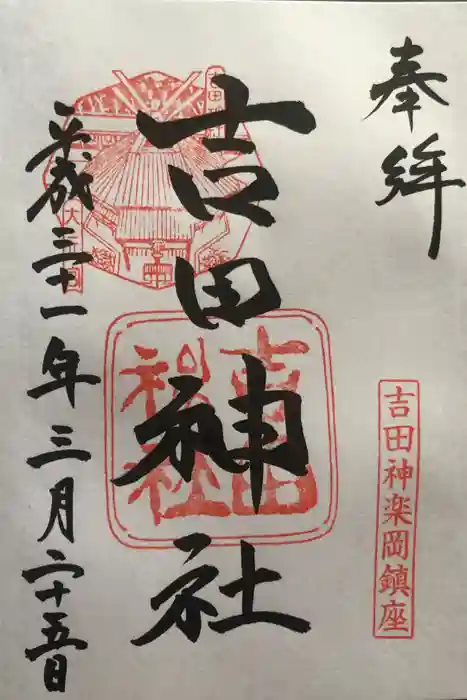 奉拝
吉田神楽岡鎮座
吉田神社
吉田神社
平成三十一年三月二十五日